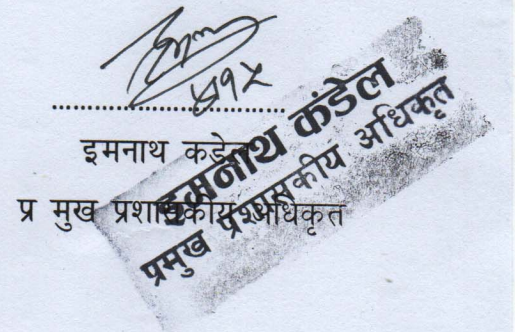 ५१५
इमनाथ कडेल
प्र मुख प्रशासकीय अधिकृत
इमनाथ कंडेल
प्रमुख प्रशासकीय अधिकृत